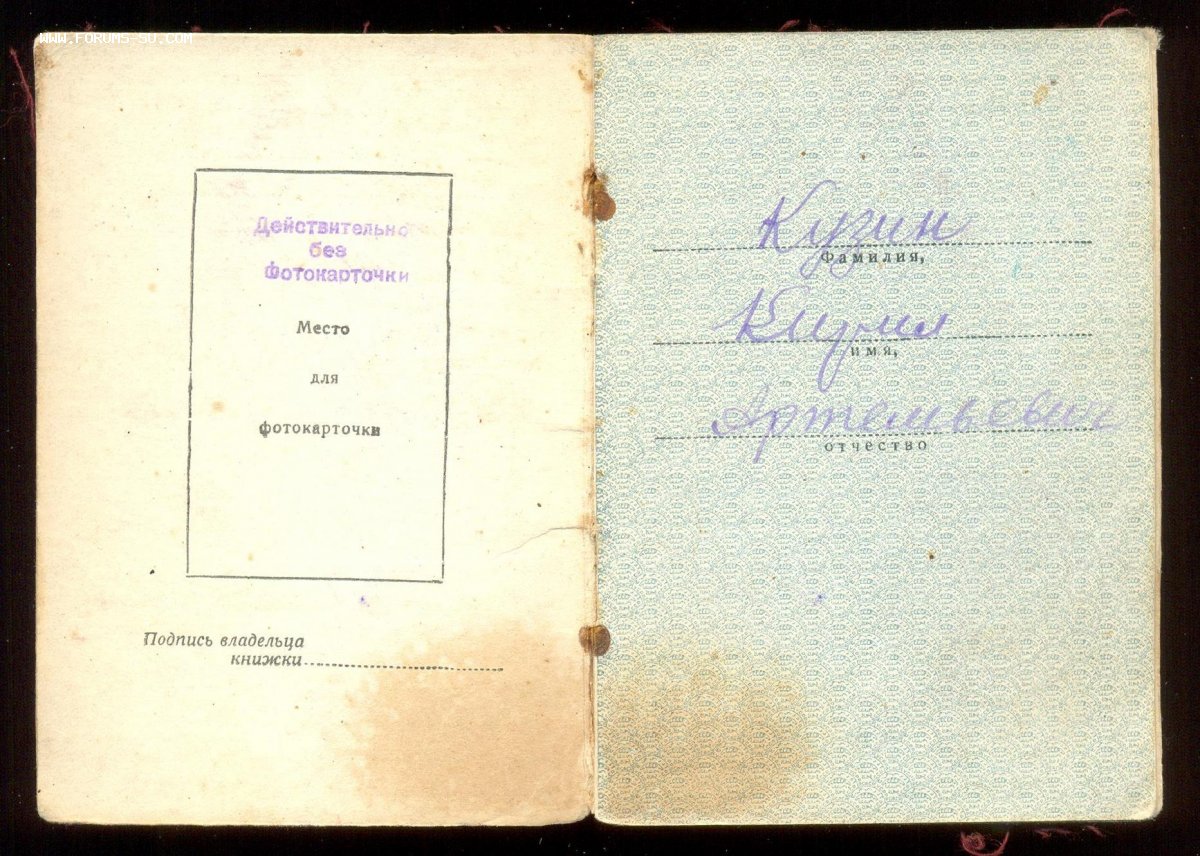 WWW.FORUMS-SU.COM
Действительно
без
фотокарточки
Место
для
фотокарточки
Подпись владельца
книжки
Кузин
Фамилия,
Кирил
имя,
Артемьевич
отчество